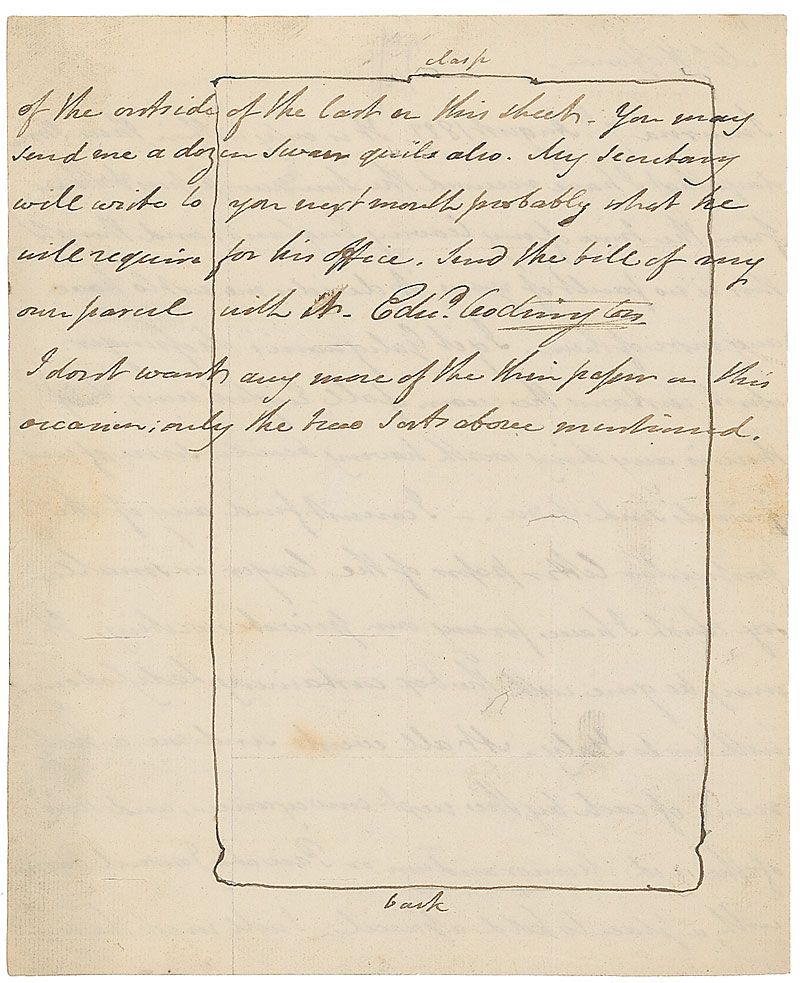 clasp
of the outside of the last on this sheet. You may
send me a dozen swan quils also. My secretary
will write to you next month probably what he
will require for his office. Send the bill of my
own parcel with it. Edwd. Codrington
I dont want any more of the thin paper on this
occasion; only the two sorts above mentioned.
back